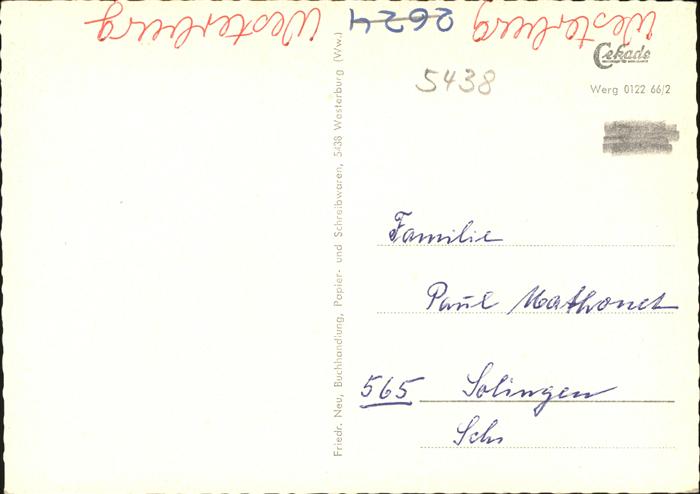 Westerburg 2624 Westerburg
Cekade
5438
Werg 0122 66/2
Friedr. Neu, Buchhandlung, Papier- und Schreibwaren, 5438 Westerburg (Ww.)
Familie
Paul Mathonet
565 Solingen
Sch